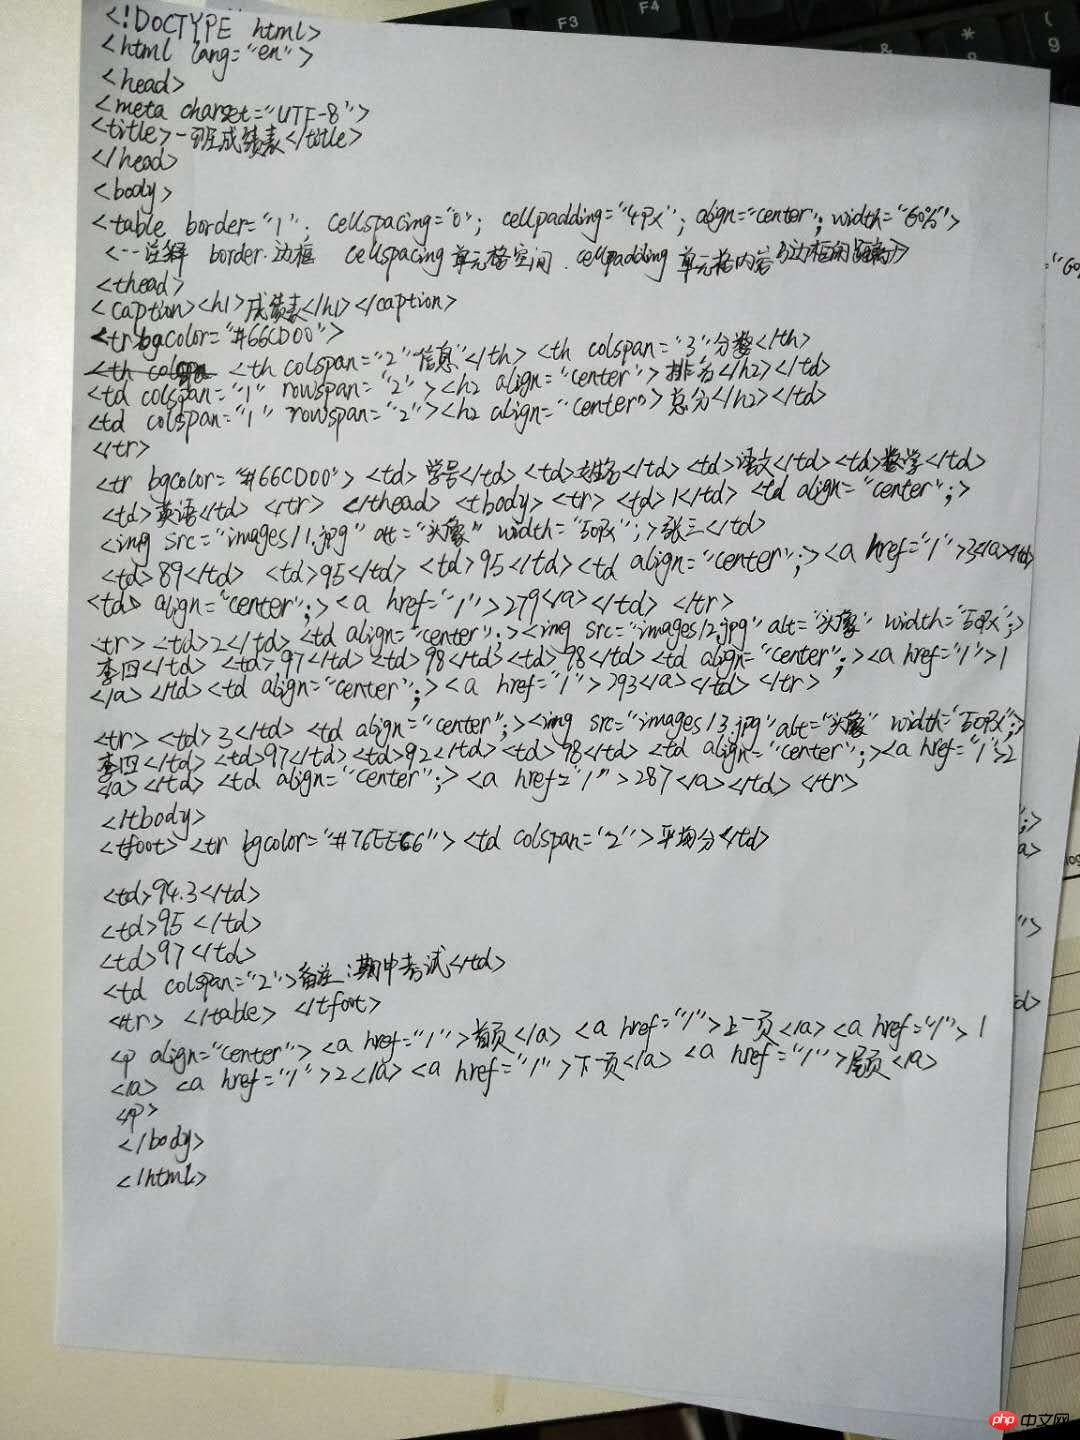 <!DOCTYPE html>
<html lang="en">
<head>
<meta charset="UTF-8">
<title>一班成绩表</title>
</head>
<body>
<table border="1"; cellspacing="0"; cellpadding="4px"; align="center"; width="60%">
<--注释 border.边框 cellspacing单元格空间.cellpadding单元格内容与边框间距离>
<thead>
<caption><h1>成绩表</h1></caption>
<tr bgcolor="#66CD00">
<th colspan="2"信息"</th> <th colspan="3"分数</th>
<td colspan="1" rowspan="2"><h2 align="center">排名</h2></td>
<td colspan="1" rowspan="2"><h2 align="center">总分</h2></td>
</tr>
<tr bgcolor="#66CD00"> <td>学号</td> <td>姓名</td> <td>语文</td><td>数学</td>
<td>英语</td> </tr> </thead> <tbody> <tr> <td>1</td> <td align="center";>
<img src="images/1.jpg" alt="头像" width="50px";>张三</td>
<td>89</td> <td>95</td> <td>95</td><td align="center";><a href="1">3</a></td>
<td> align="center";><a href="1">279</a></td> </tr>
<tr> <td>2</td><td align="center";><img src="images/2.jpg" alt="头像" width="50px";>
李四</td> <td>97</td><td>98</td><td>98</td><td align="center";><a href="1">1
</a></td><td align="center";><a href="1">293</a></td> </tr>
<tr> <td>3</td> <td align="center";><img src="images/3.jpg" alt="头像" width="50px";>
李四</td> <td>97</td><td>92</td><td>98</td> <td align="center";><a href="1">2
</a></td> <td align="center";> <a href="1">287</a></td> </tr>
</tbody>
<tfoot> <tr bgcolor="#76EEC6"> <td colspan="2">平均分</td>
<td>94.3</td>
<td>95</td>
<td>97</td>
<td colspan="2">备注:期中考试</td>
</tr> </table> </tfoot>
<p align="center"> <a href="1">首页</a> <a href="1">上一页</a> <a href="1">1
</a> <a href="1">2</a> <a href="1">下一页</a> <a href="1">尾页</a>
</p>
</body>
</html>
php 中文网